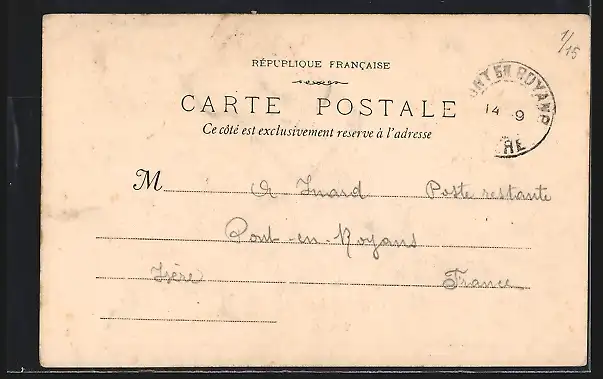 1/15
RÉPUBLIQUE FRANÇAISE
CARTE POSTALE
Ce côté est exclusivement reserve à l'adresse
ONT EN ROYANS
14 9
ÈRE
M. A Poste restante
Pont-en-Royans
Isère France